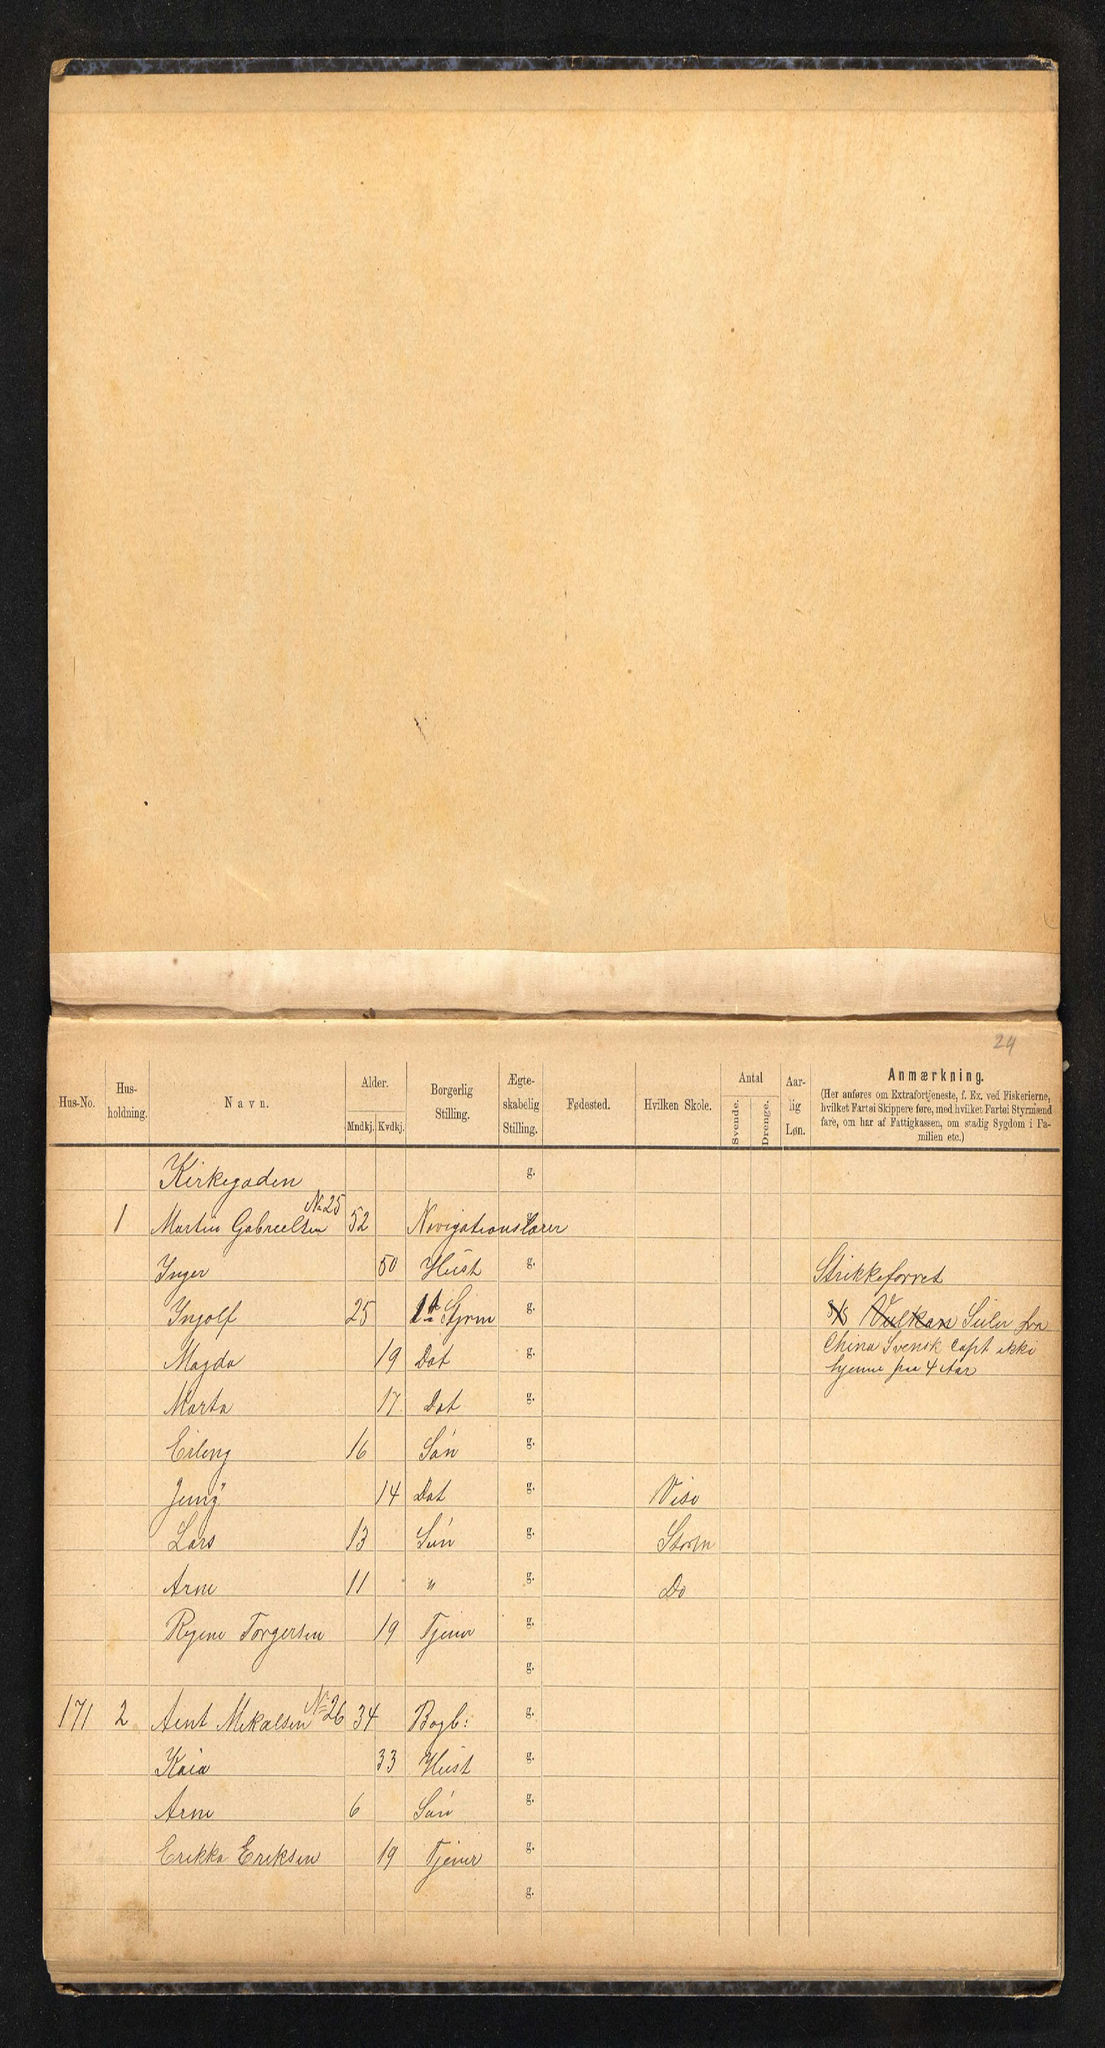 24
Hus-No. Hus-holdning. Navn. Alder. Mndkj. Kvdkj. Borgerlig Stilling. Ægte-skabelig Stilling. Fødested. Hvilken Skole. Antal Svende. Drenge. Aar-lig Løn. Anmærkning.
(Her anføres om Extrafortjeneste, f. Ex. ved Fiskerierne,
hvilket Fartøi Skippere føre, med hvilket Fartøi Styrmænd
fare, om har af Fattigkassen, om stadig Sygdom i Fa-
milien etc.)
Kirkegaden g.
1 Martin Gabrielsen No 25 52 Navigationslærer
Inger 50 Hust g. Strikkeforret
Ingolf 25 1st Styrm g. S/S Vulkan Seiler fra
Magda 19 Dat g. China Svensk Capt ikke
hjemme paa 4 Aar
Marta 17 Dat g.
Erling 16 Søn g.
Jenny 14 Dat g.
Lars 13 Søn g.
Arne 11 " g. Do
Regine Torgersen 19 Tjener g.
g.
171 2 Arnt Mikalsen No 26 34 Bogb: g.
Kaia 33 Hust g.
Arne 6 Søn g.
Erikka Eriksen 19 Tjener g.
g.